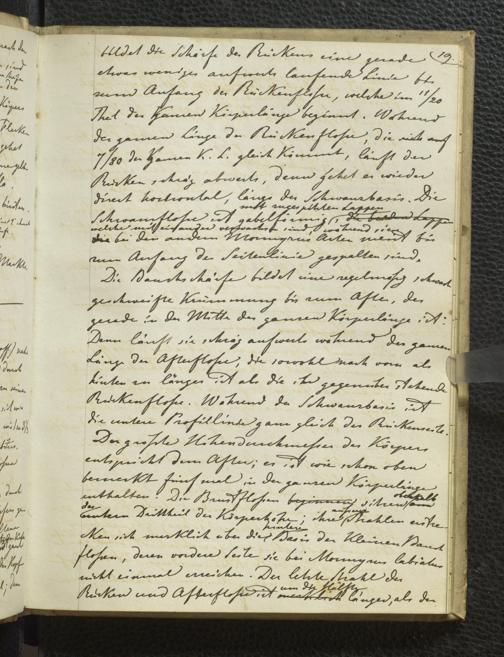 19.
bildet die Schärfe des Rückens eine gerade
etwas weniges aufwerts laufende Linie bis
zum Anfang der Rückenflosse, welche im 11/20
Theil der ganzen Körperlänge beginnt. Während
der ganzen Länge der Rückenflosse, die sich auf
7/30 der ganzen K. L. gleich kommt, läuft der
Rücken schräg abwerts, dann gehet er wieder
direct horizontal, längs der Schwanzbasis. Die
mit zugespitzten Lappen
Schwanzflosse ist gabelförmig, die beiden Lappen
welche mit einander verwachsen sind, während sie
die bei den andern Mormyrus Arten meist bis
zum Anfang der Seitenlinie gespalten sind.
Die Bauchschärfe bildet eine regelmäsig schwach
geschweifte Krümmung bis zum After, der
gerade in der Mitte der ganzen Körperlänge ist:
Dann läuft sie schräg aufwerts während der ganzen
Länge der Afterflosse, die sowohl nach vorn als
hinten zu länger ist als die ihr gegenüber stehende
Rückenflosse. Während der Schwanzbasis ist
die untere Profillinie ganz gleich der Rückenseite.
Der größte Höhendurchmesser des Körpers
entspricht dem After; es ist wie schon oben
bemerkt fünf mal in der ganzen Körperlänge
enthalten. Die Brustflossen beginnen sitzen oberhalb am
der untern Drittheil der Körperhöhe; ihre Strahlen erstre-
cken sich merklich über die Basis der kleinen Bauch
flossen, deren vordere Seite sie bei Mormyrus labiatus
nicht einmal erreichen. Der letzte Strahl der
Rücken und Afterflosse ist um die Hälfte länger, als der